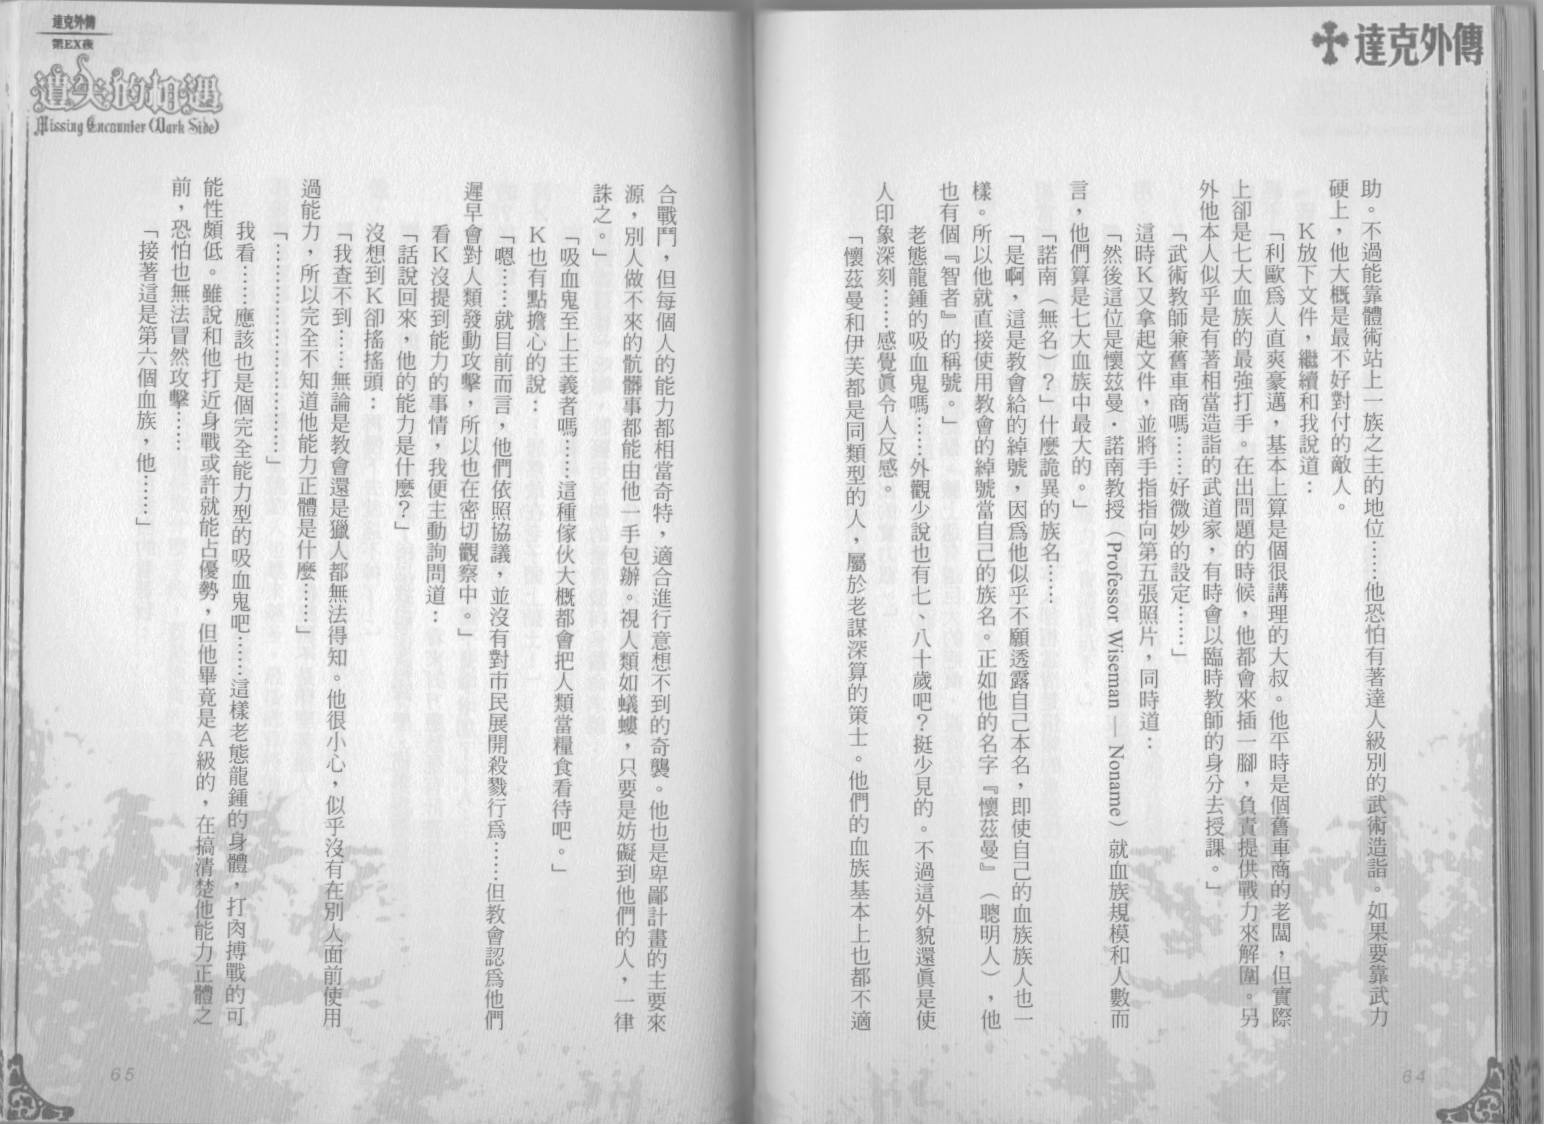 達克外傳
助。不過能靠體術站上一族之主的地位……他恐怕有著達人級別的武術造詣。如果要靠武力
硬上，他大概是最不好對付的敵人。
K放下文件，繼續和我說道：
「利歐爲人直爽豪邁，基本上算是個很講理的大叔。他平時是個舊車商的老闆，但實際
上卻是七大血族的最強打手。在出問題的時候，他都會來插一腳，負責提供戰力來解圍。另
外他本人似乎是有著相當造詣的武道家，有時會以臨時教師的身分去授課。」
「武術教師兼舊車商嗎……好微妙的設定……」
這時K又拿起文件，並將手指指向第五張照片，同時道：
「然後這位是懷茲曼・諾南教授（Professor Wiseman — Noname）就血族規模和人數而
言，他們算是七大血族中最大的。」
「諾南（無名）？」什麼詭異的族名……
「是啊，這是教會給的綽號，因爲他似乎不願透露自己本名，即使自己的血族族人也一
樣。所以他就直接使用教會的綽號當自己的族名。正如他的名字『懷茲曼』（聰明人），他
也有個『智者』的稱號。」
老態龍鍾的吸血鬼嗎……外觀少說也有七、八十歲吧？挺少見的。不過這外貌還眞是使
人印象深刻……感覺眞令人反感。
「懷茲曼和伊芙都是同類型的人，屬於老謀深算的策士。他們的血族基本上也都不適
64
達克外傳
第EX夜
遺失的相遇
Missing Encounter (Dark Side)
合戰鬥，但每個人的能力都相當奇特，適合進行意想不到的奇襲。他也是卑鄙計畫的主要來
源，別人做不來的骯髒事都能由他一手包辦。視人類如蟻螻，只要是妨礙到他們的人，一律
誅之。」
「吸血鬼至上主義者嗎……這種傢伙大概都會把人類當糧食看待吧。」
K也有點擔心的說：
「嗯……就目前而言，他們依照協議，並沒有對市民展開殺戮行爲……但教會認爲他們
遲早會對人類發動攻擊，所以也在密切觀察中。」
看K沒提到能力的事情，我便主動詢問道：
「話說回來，他的能力是什麼？」
沒想到K卻搖搖頭：
「我查不到……無論是教會還是獵人都無法得知。他很小心，似乎沒有在別人面前使用
過能力，所以完全不知道他能力正體是什麼……」
「…………………………」
我看……應該也是個完全能力型的吸血鬼吧……這樣老態龍鍾的身體，打肉搏戰的可
能性頗低。雖說和他打近身戰或許就能占優勢，但他畢竟是A級的，在搞清楚他能力正體之
前，恐怕也無法冒然攻擊……
「接著這是第六個血族，他……」
65